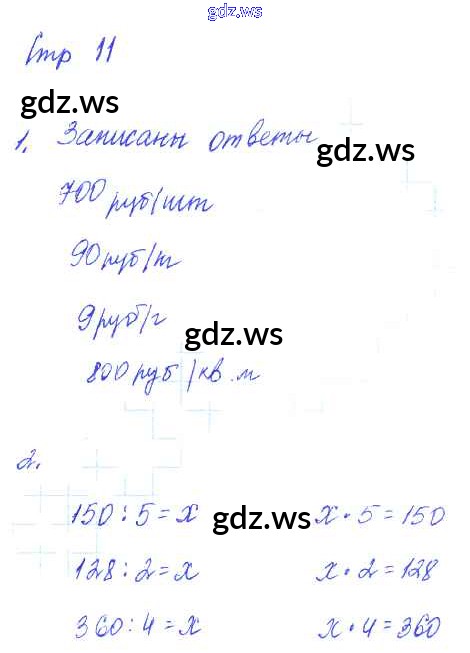 gdz.ws
Стр 11
gdz.ws
1. Записаны ответы
gdz.ws
700 руб/шт
90 руб/м
9 руб/г
gdz.ws
800 руб/кв.м
2.
150 : 5 = x    x · 5 = 150
gdz.ws
128 : 2 = x    x · 2 = 128
360 : 4 = x    x · 4 = 360
gdz.ws